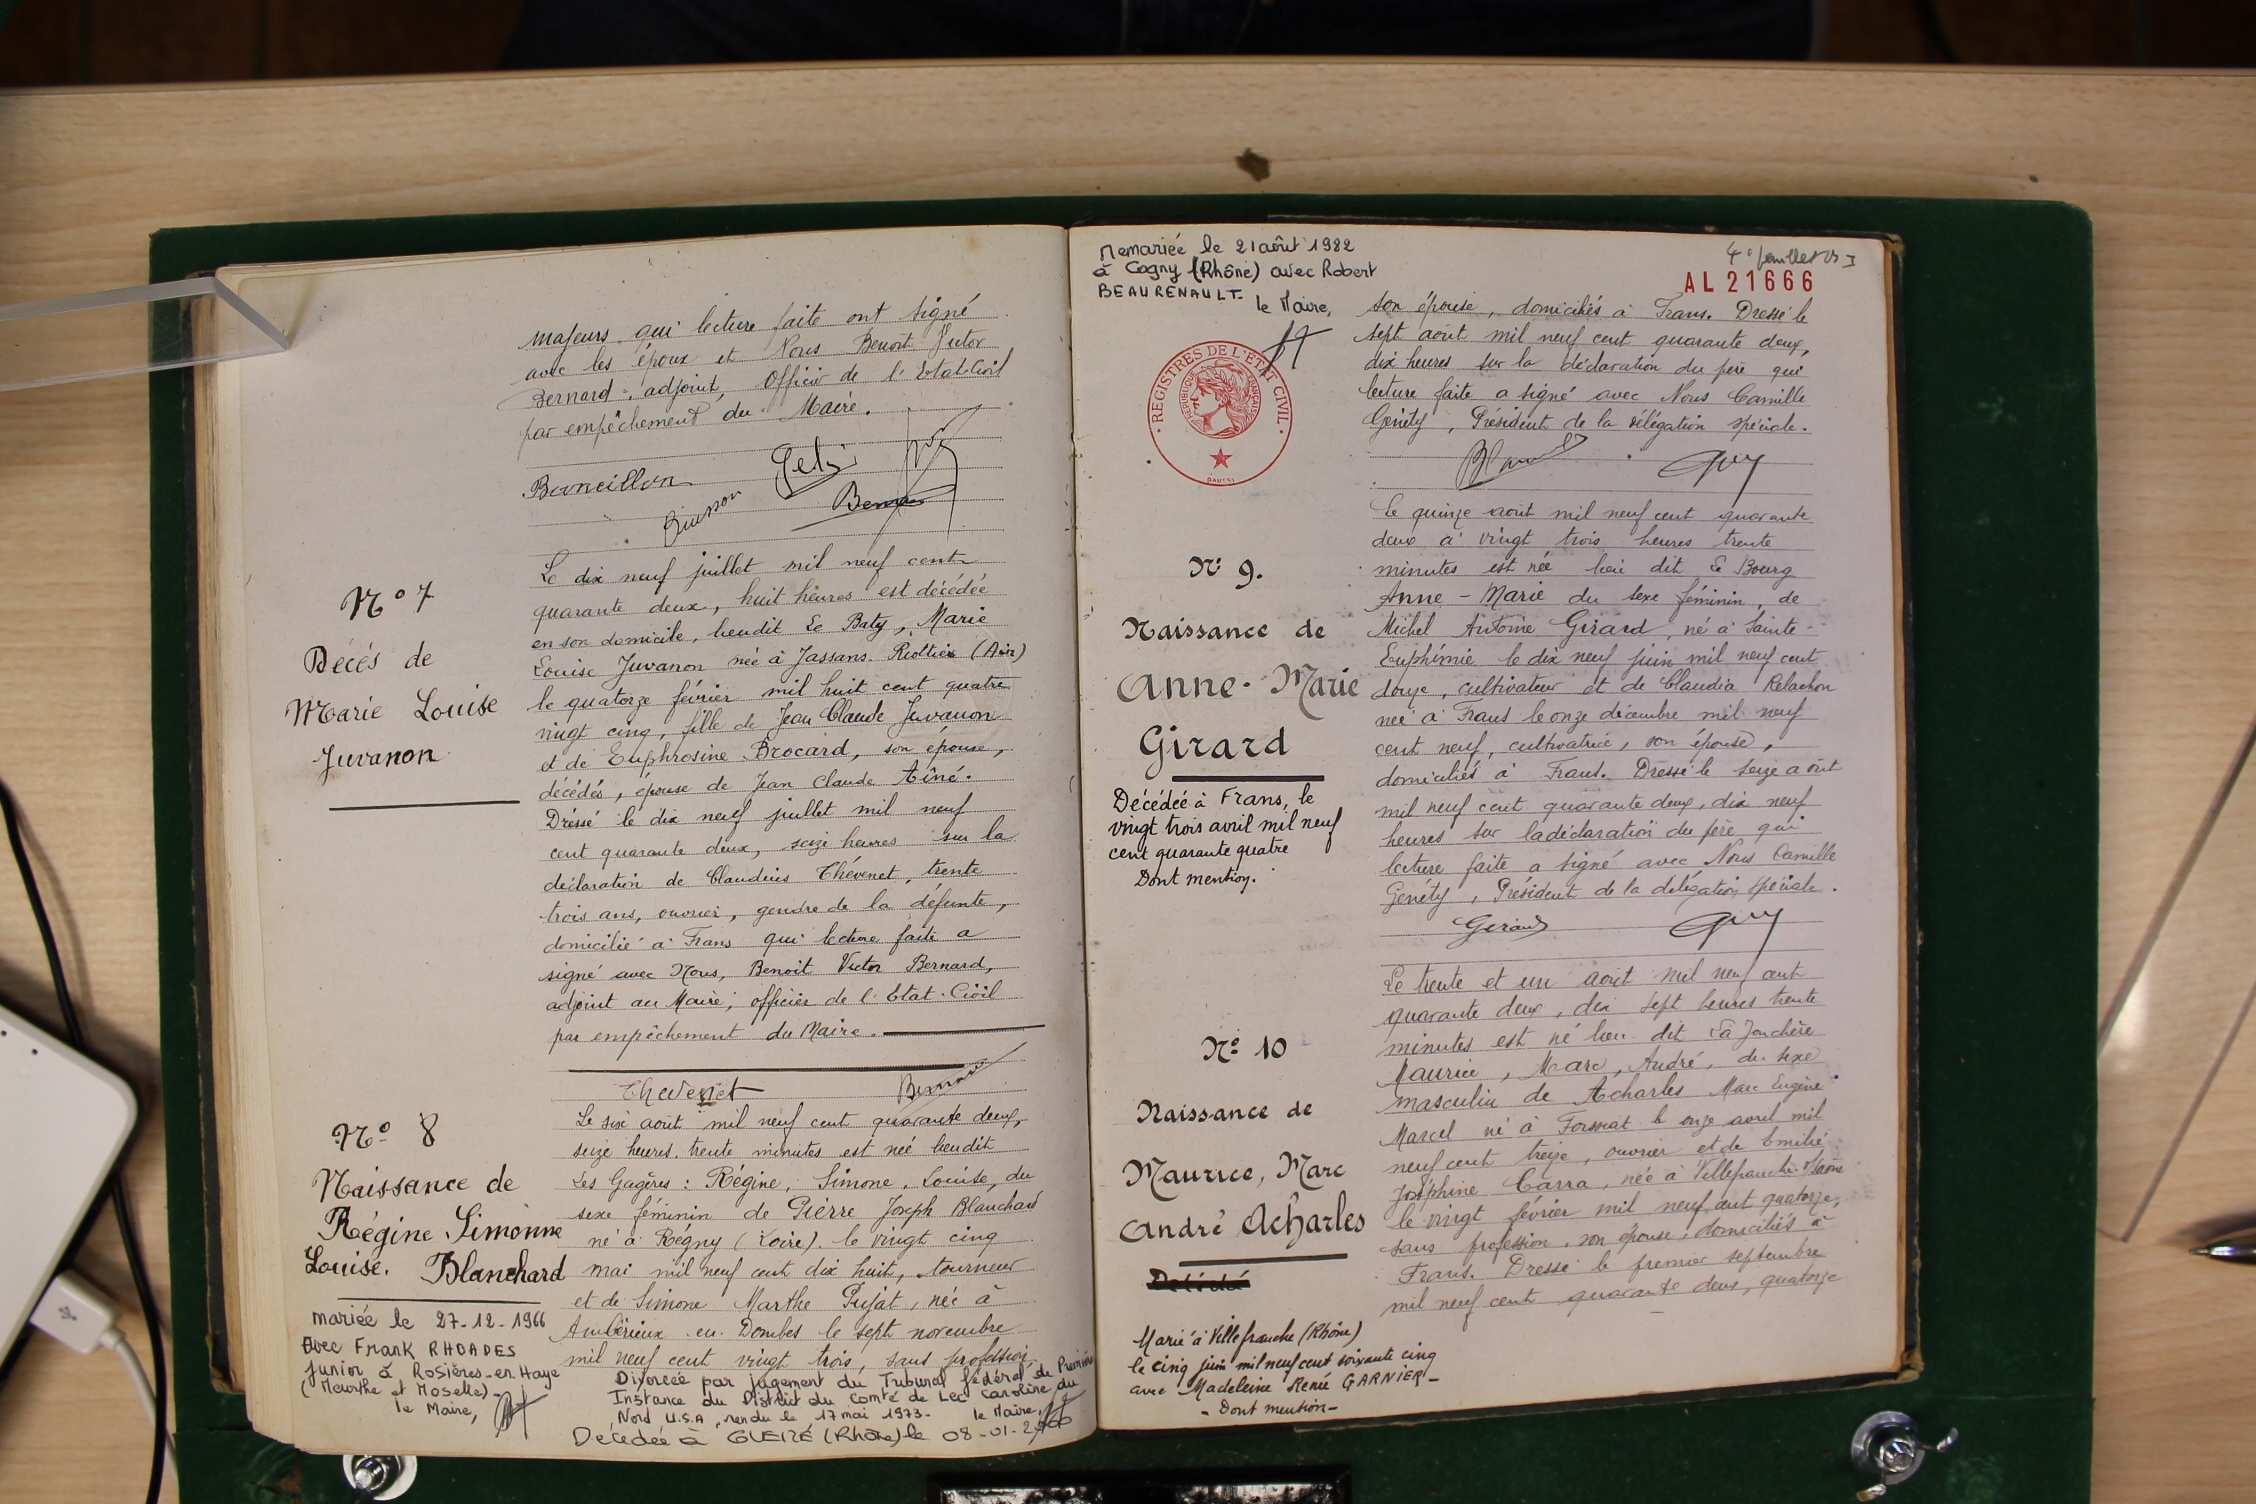 majeurs qui lecture faite ont signé
avec les époux et Nous Benoit Victor
Bernard, adjoint, Officier de l'Etat-Civil
par empêchement du Maire.
Bancillon
Buisson
Bernard
N° 7
Décès de
Marie Louise
Juvanon
Le dix neuf juillet mil neuf cent
quarante deux, huit heures est décédée
en son domicile, lieudit Le Baty, Marie
Louise Juvanon née à Jassans-Riottier (Ain)
le quatorze février mil huit cent quatre
vingt cinq, fille de Jean Claude Juvanon
et de Euphrosine Brocard, son épouse,
décédés, épouse de Jean Claude Aîné.
Dressé le dix neuf juillet mil neuf
cent quarante deux, seize heures sur la
déclaration de Claudius Thévenet, trente
trois ans, ouvrier, gendre de la défunte,
domicilié à Frans qui lecture faite a
signé avec Nous, Benoit Victor Bernard,
adjoint au Maire, officier de l'Etat-Civil
par empêchement du Maire.
Thevenet
Bernard
N° 8
Naissance de
Régine Simonne
Louise. Blanchard
mariée le 27-12-1966
Avec Frank RHOADES
junior à Rosières-en-Haye
(Meurthe et Moselle)-
le Maire,
Le six août mil neuf cent quarante deux,
seize heures trente minutes est née lieudit
Les Gagères : Régine, Simone, Louise, du
sexe féminin de Pierre Joseph Blanchard
né à Régny (Loire) le vingt cinq
mai mil neuf cent dix huit, tourneur
et de Simone Marthe Pujat, née à
Ambérieux en Dombes le sept novembre
mil neuf cent vingt trois, sans profession,
Divorcée par jugement du Tribunal fédéral de Première
Instance du District du Comté de Lec Caroline du
Nord U.S.A, rendu le 17 mai 1973- le Maire,
Décédée à GLEIZÉ (Rhône) le 08-01-2
Remariée le 21 août 1982
à Cogny (Rhône) avec Robert
BEAURENAULT-
le Maire,
REGISTRES DE L'ETAT CIVIL
REPUBLIQUE FRANÇAISE
4e feuillet
AL 21666
son épouse, domiciliés à Frans. Dressé le
sept août mil neuf cent quarante deux,
dix heures sur la déclaration du père qui
lecture faite a signé avec Nous Camille
Genéty, Président de la délégation spéciale.
N° 9.
Naissance de
Anne-Marie
Girard
Décédée à Frans, le
vingt trois avril mil neuf
cent quarante quatre
Dont mention.
Le quinze août mil neuf cent quarante
deux à vingt trois heures trente
minutes est née lieu dit Le Bourg
Anne-Marie du sexe féminin, de
Michel Antoine Girard, né à Sainte-
Euphémie le dix neuf juin mil neuf cent
douze, cultivateur et de Claudia Relachon
née à Frans le onze décembre mil neuf
cent neuf, cultivatrice, son épouse,
domiciliés à Frans. Dressé le seize août
mil neuf cent quarante deux, dix neuf
heures sur la déclaration du père qui
lecture faite a signé avec Nous Camille
Genéty, Président de la délégation spéciale.
Girard
N° 10
Naissance de
Maurice, Marc
André Acharles
Décédé
Marié à Villefranche (Rhône)
le cinq juin mil neuf cent soixante cinq
avec Madeleine Renée GARNIER-
- Dont mention-
Le trente et un août mil neuf cent
quarante deux, dix sept heures trente
minutes est né lieu dit La Jonchère
Maurice, Marc, André, du sexe
masculin de Acharles Marc Eugène
Marcel né à Forssat le onze avril mil
neuf cent treize, ouvrier et de Emilie
Joséphine Carra, née à Villefranche s/Saône
le vingt février mil neuf cent quatorze,
sans profession, son épouse, domiciliés à
Frans. Dressé le premier septembre
mil neuf cent quarante deux, quatorze